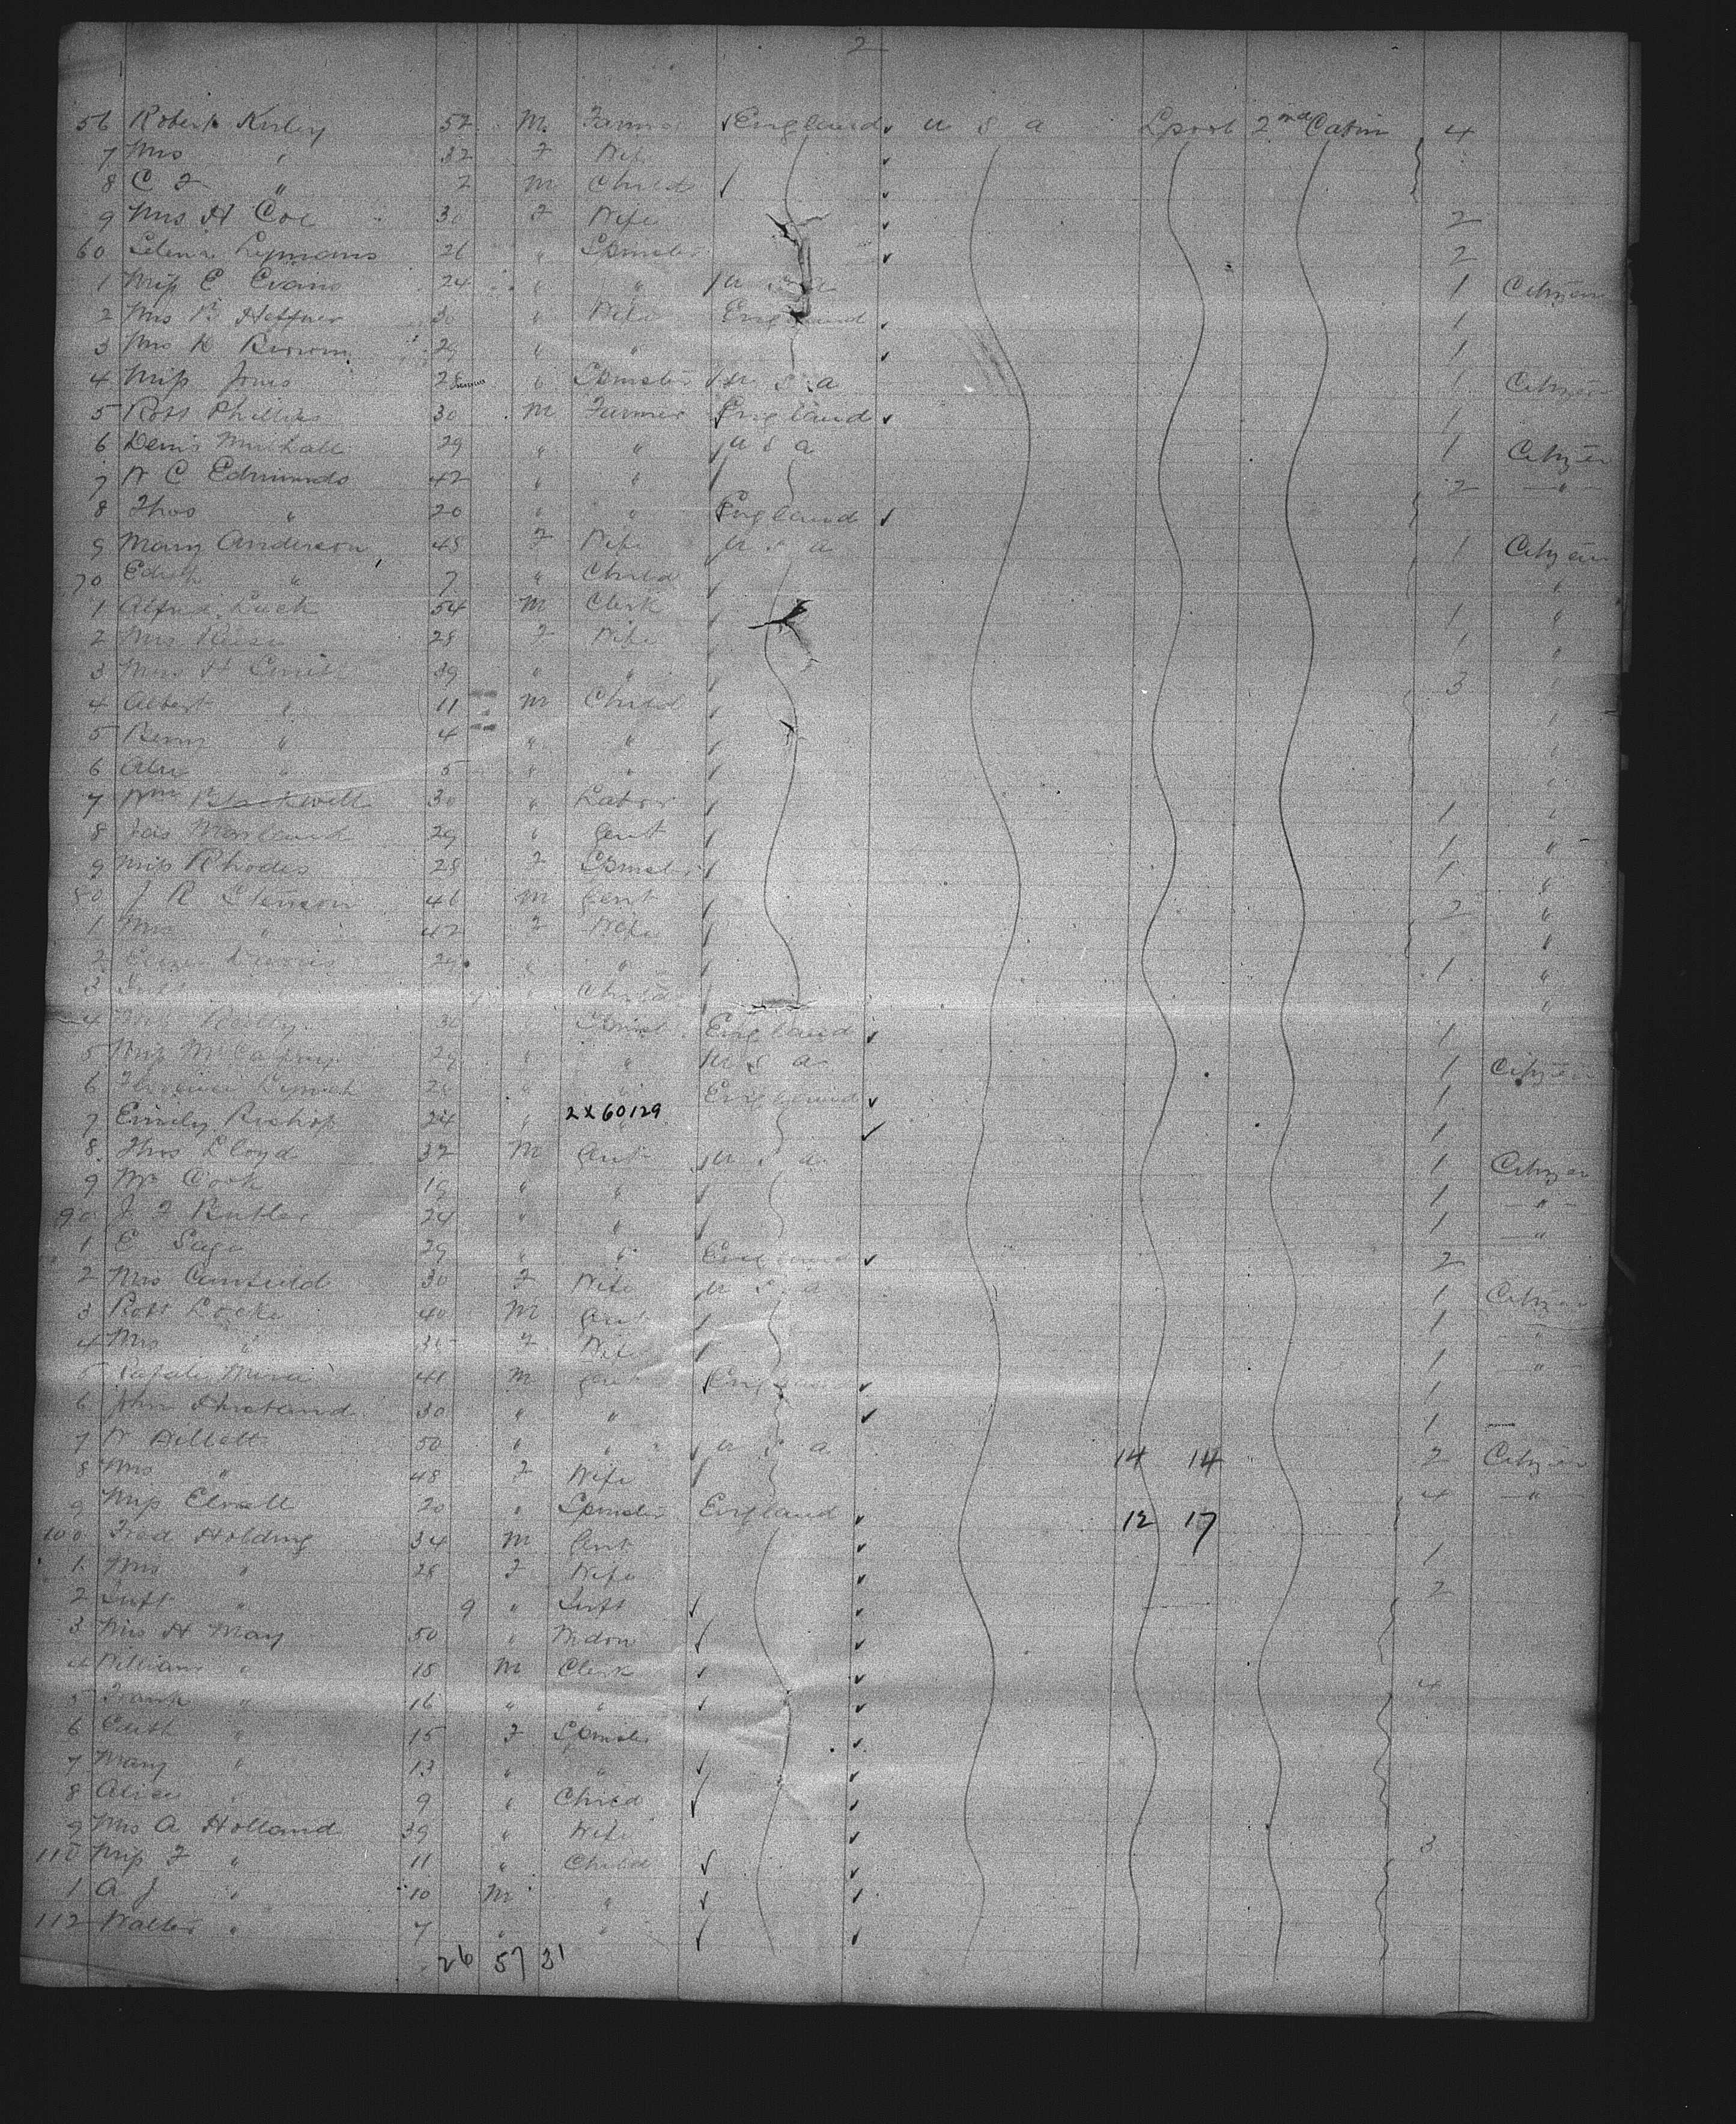 2
56 Robert Kirby 52 M. Farmer England U S A Lpool 2nd Cabin 4
7 Mrs " 32 F Wife
8 C F " 2 M Child
9 Mrs H Coe 30 F Wife 2
60 Lymans 26 " Spinster 2
1 Miss E Evans 24 " " U S A 1 Citizen
2 Mrs Heffner 30 " Wife England 1
3 Mrs Brown 29 " " 1
4 Miss Jones 28 " Spinster U S A 1 Citizen
5 Robt Phillips 30 M Farmer England 1
6 Denis Mulhall 29 " " U S A 1 Citizen
7 W C Edmunds 42 " " 2 "
8 Thos " 20 " " England
9 Mary Anderson 48 F Wife U S A 1 Citizen
70 Edith " 7 " Child "
1 Alfred Luck 54 M Clerk 1 "
2 Mrs 28 F Wife 1 "
3 Mrs H Smith 39 " " 3 "
4 Albert " 11 M Child "
5 " 4 " " "
6 " 5 " " "
7 Wm Blackwell 30 " Labor 1 "
8 Jas Morland 29 " Gent 1 "
9 Miss Rhodes 28 F Spinster 1 "
80 J R Stenson 46 M Gent 2 "
1 Mrs " 42 F Wife "
2 29 " " 1 "
3 Inft " " Child "
4 Reilly 30 " Spinst England 1
5 Miss 29 " " U S A 1 Citizen
6 Florence 26 " " England 1
7 Emily Bishop 24 " 2 X 60129 " 1
8 Thos Lloyd 32 M Gent U S A 1 Citizen
9 Wm Cook 19 " " 1 "
90 J F Butler 24 " " 1 "
1 E Sage 29 " " England 2
2 Mrs Canfield 30 F Wife U S A 1 Citizen
3 Robt Locke 40 M Gent 1 "
4 Mrs " 35 F Wife 1 "
5 41 M Gent England 1
6 John 30 " " 1
7 W 50 " " U S A 14 14 2 Citizen
8 Mrs " 48 F Wife 4 "
9 Miss 20 " Spinster England 12 17
100 Fred Holding 34 M Gent 1
1 Mrs " 28 F Wife 2
2 Inft " 9 " Inft
3 Mrs H May 50 " Widow
4 William " 18 M Clerk 4
5 Frank " 16 " "
6 Edith " 15 F Spinster
7 Mary " 13 " "
8 Alice " 9 " Child
9 Mrs A Holland 39 " Wife 3
110 Miss F " 11 " Child
1 A J " 10 M "
112 Walter " 7 " "
26 57 31